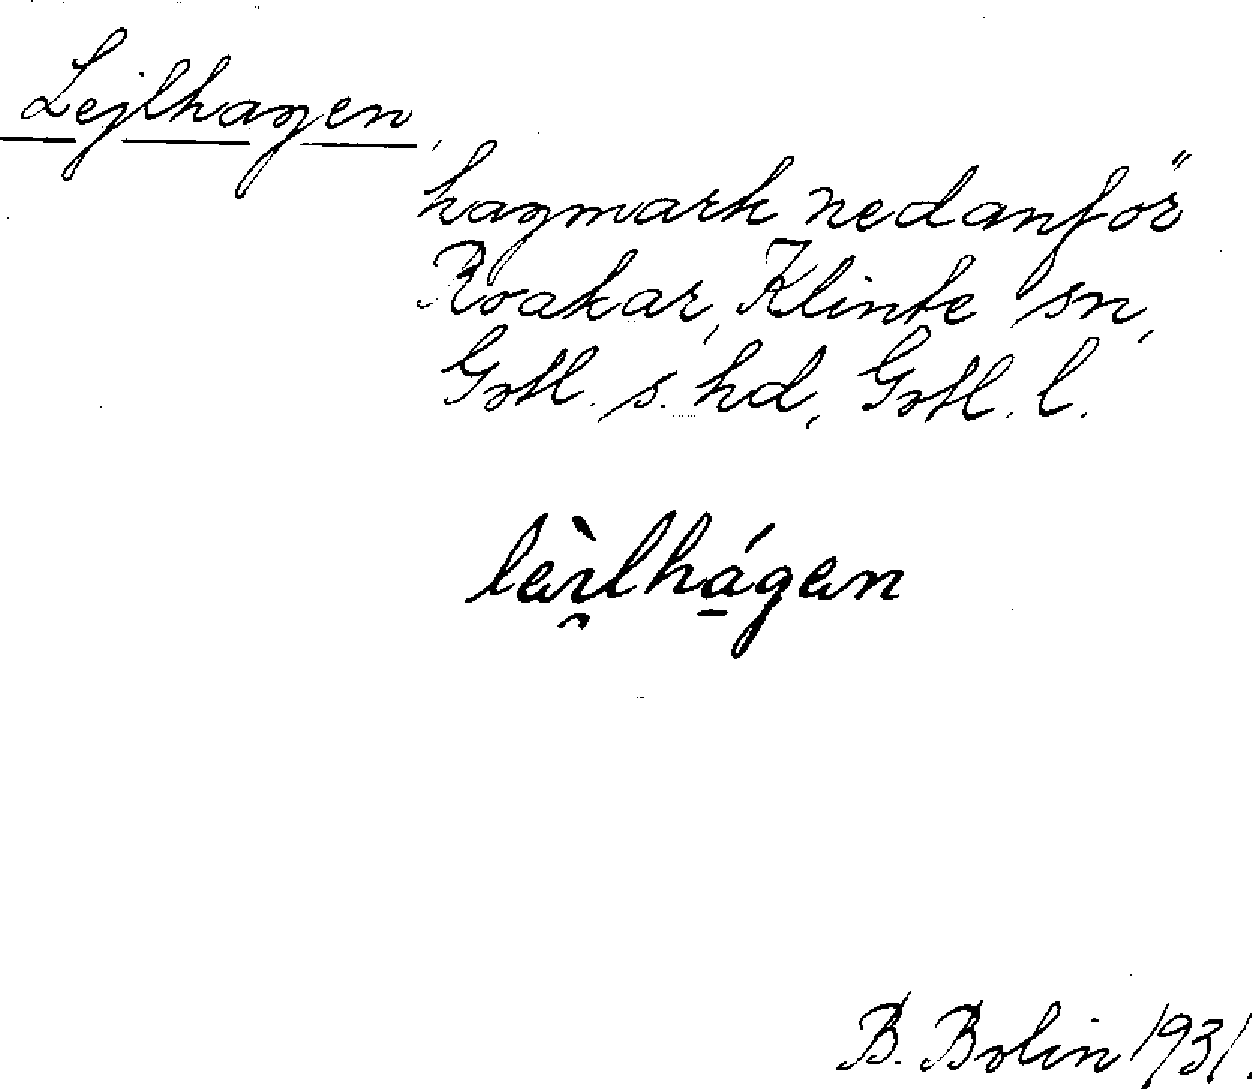 Lejlhagen,
hagmark nedanför
Roakar, Klinte sn,
Gotl. s. hd, Gotl. l.
lèi̯lhá̱gen
B. Bolin 1931.